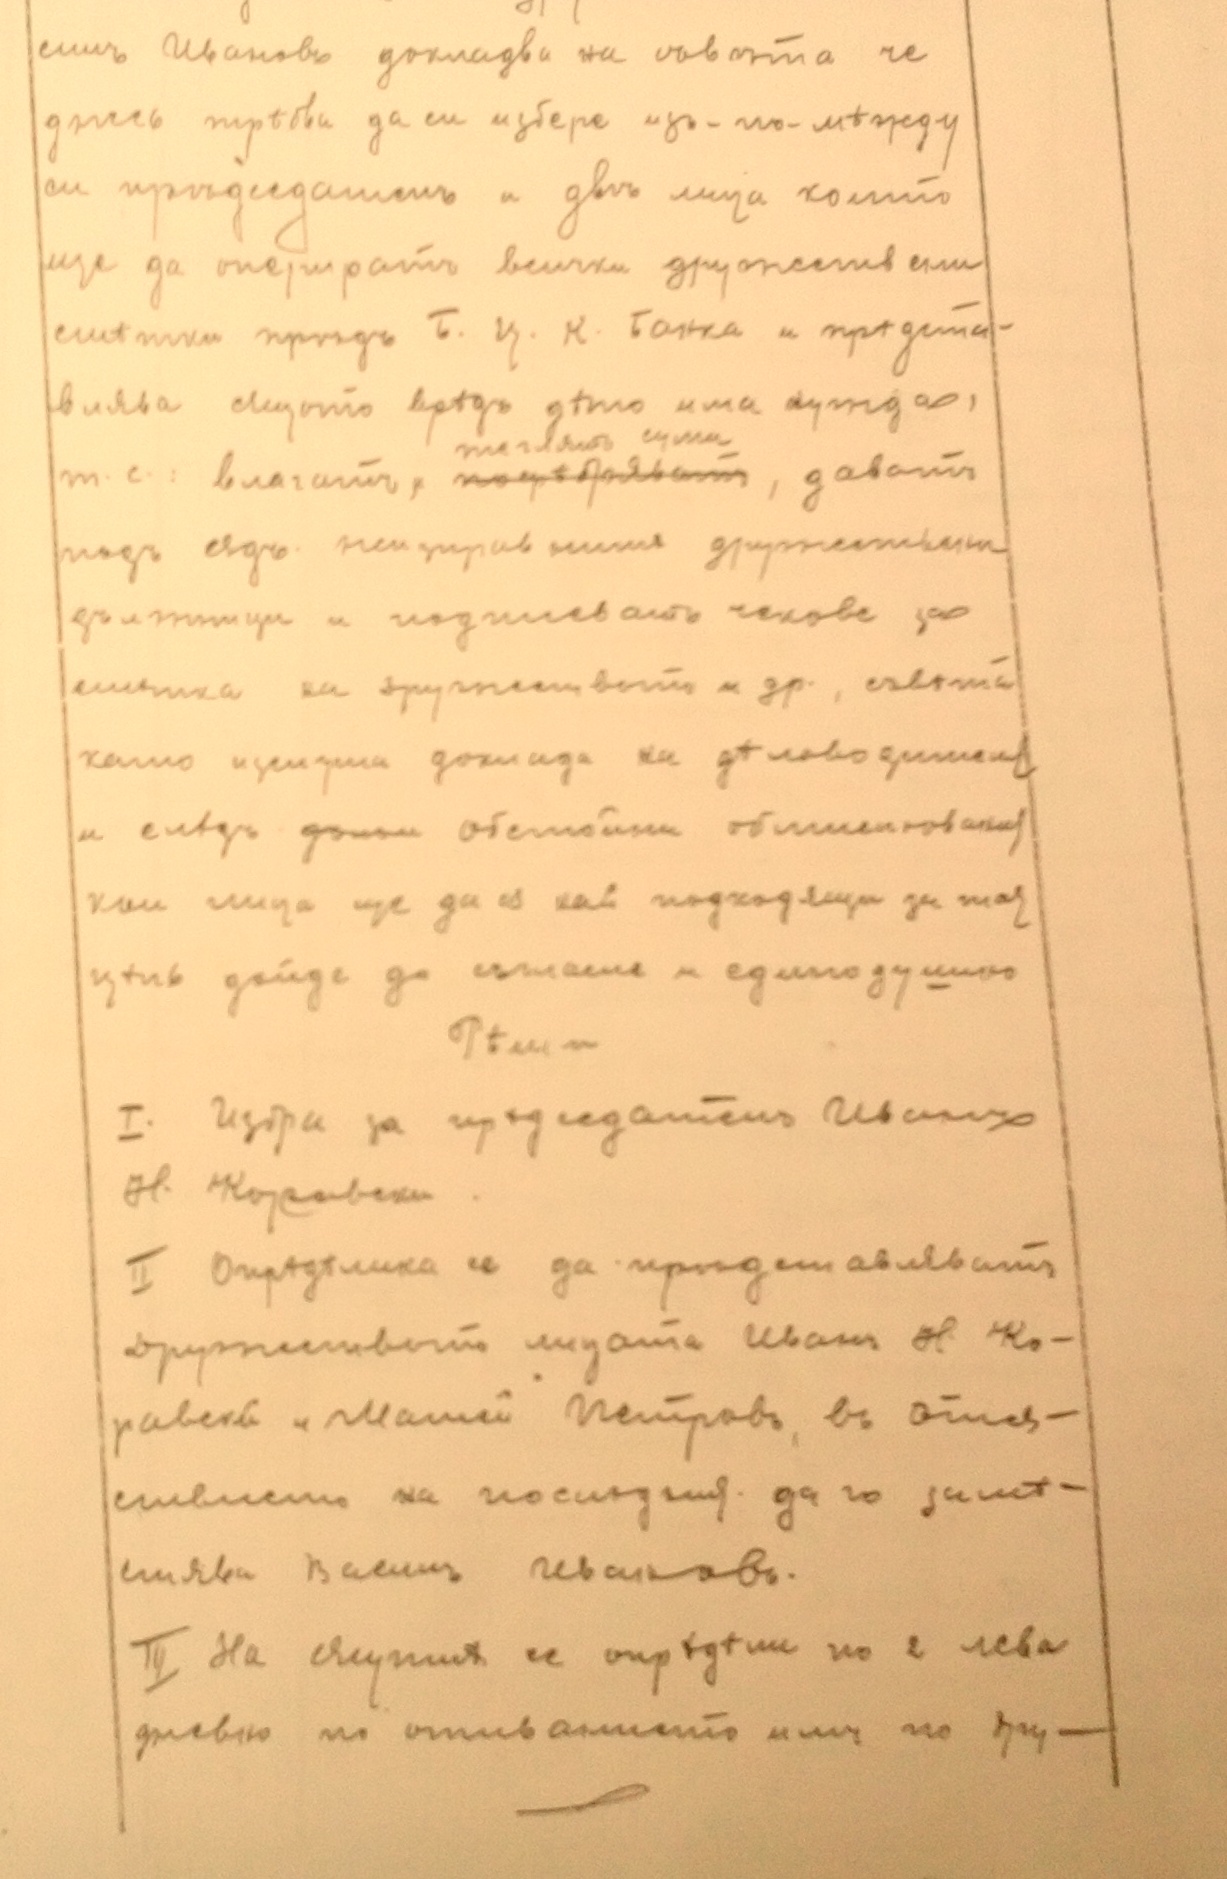 силъ Ивановъ докладва на съвѣта че
днесь трѣбва да си избере изъ-по-мѣжду
си прѣдседатель и двѣ лица които
ще да опериратъ всички дружествени
смѣтки прѣдъ Б. Ц. К. Банка и прѣдста-
влява същото врѣдъ дѣто има нужда,
т. е.: влагатъ, теглятъ суми, даватъ
подъ съдъ неизправните дружествени
длъжници и подписватъ чекове за
сметка на дружеството и др., съвѣта
като изслуша доклада на дѣловодителя
и слѣдъ обстойни обмислования
кои лица ще да са най подходящи за тая
цѣль дойде до съгласие и единодушно
Рѣши
I. Избра за прѣдседатель Иванъ
Н. Коравски.
II Опрѣдѣлиха се да прѣдставляватъ
дружеството лицата Иванъ Н. Ко-
равски и Матей Петровъ, въ отсъ-
ствието на последния да го замѣ-
стява Василъ Ивановъ.
III На същите се опрѣдѣли по 2 лева
дневно по отиванието или по дру-